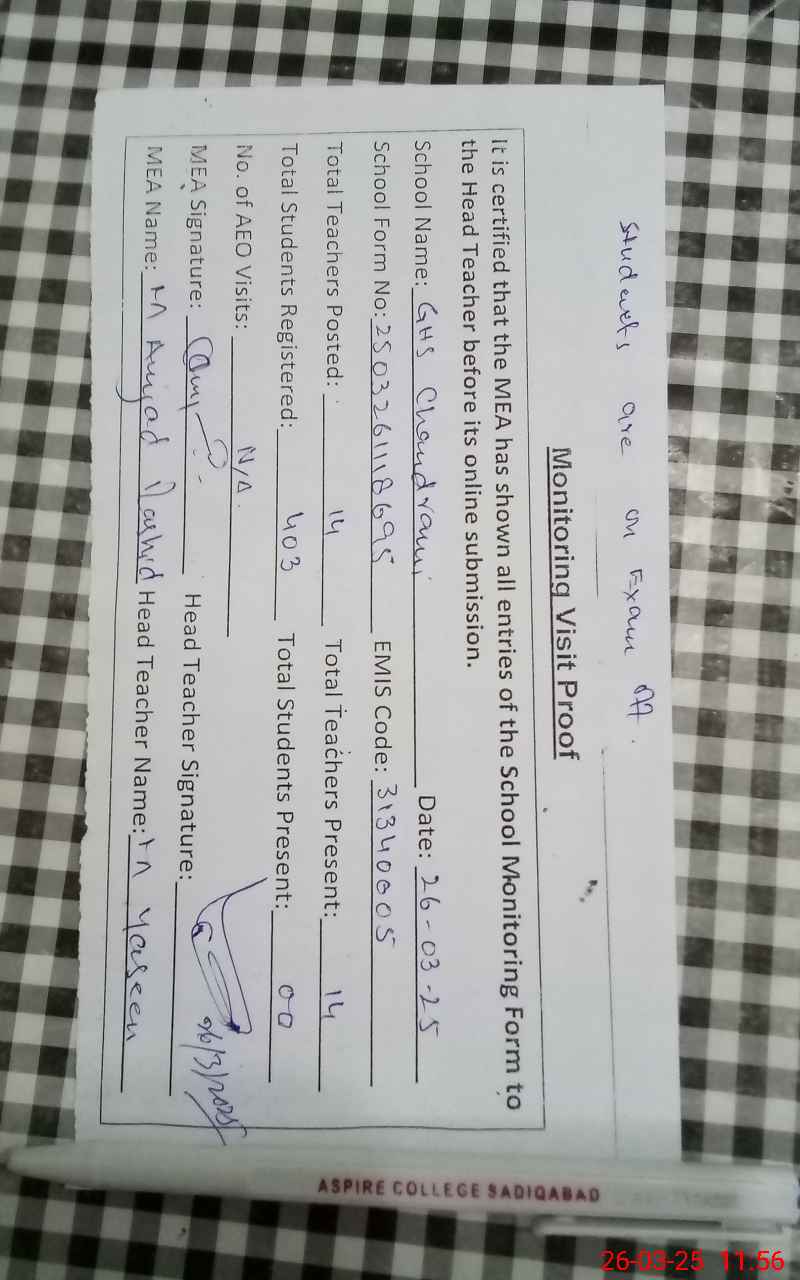 Students are on Exam off.
Monitoring Visit Proof
It is certified that the MEA has shown all entries of the School Monitoring Form to
the Head Teacher before its online submission.
School Name: GHS Chandrami Date: 26-03-25
School Form No: 2503261118695 EMIS Code: 31340005
Total Teachers Posted: 14 Total Teachers Present: 14
Total Students Registered: 403 Total Students Present: 00
No. of AEO Visits: N/A.
MEA Signature: Head Teacher Signature: 26/3/2025
MEA Name: M Amjad Rashid Head Teacher Name: M Yaseen
ASPIRE COLLEGE SADIQABAD
26-03-25 11:56